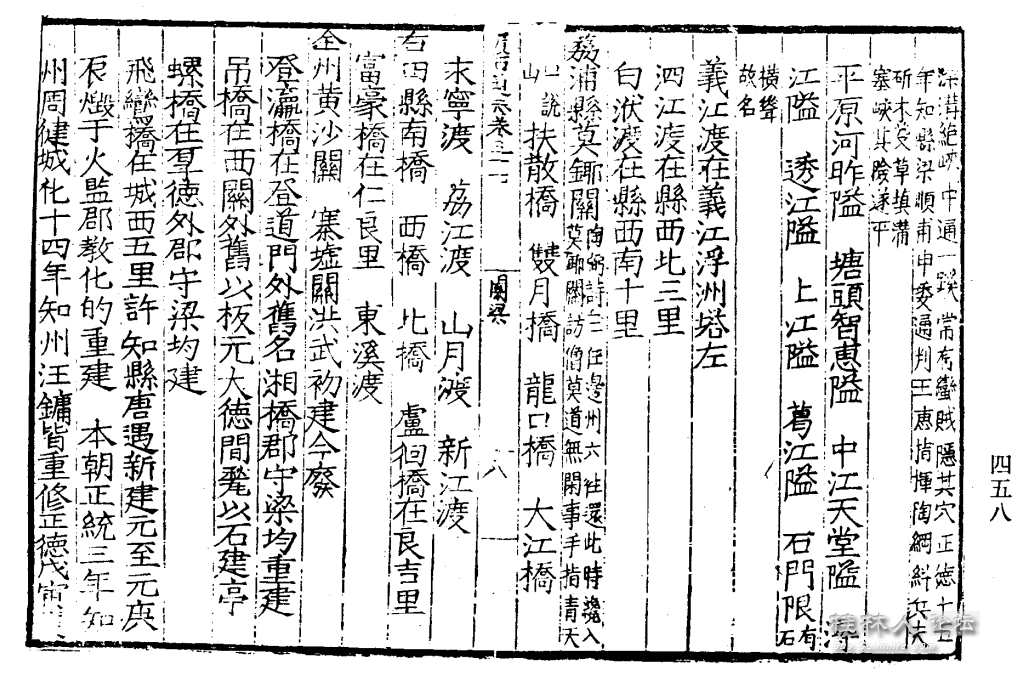 深溝絕峽中通一蹊常有蠻賊隱其穴正德十五
年知縣梁順甫申委通判王惠指揮陶綱糾兵夫
斫木芟草填溝
塞峽其險遂平
平原河昨隘 塘頭智惠隘 中江天堂隘 浮
江隘 透江隘 上江隘 葛江隘 石門限有石
橫聳
故名
義江渡在義江浮洲塔左
四江渡在縣西北三里
白洑渡在縣西南十里
荔浦縣莫鎁關陶弼詩云任邊州六往還此時纔入
莫鎁關訪僧莫道無閑事手指青天
說
山
扶散橋 雙月橋 龍口橋 大江橋
卷之
關梁
八
永寧渡 荔江渡 山月渡 新江渡
右田縣南橋 西橋 北橋 盧徊橋在良吉里
富豪橋在仁良里 東溪渡
全州黃沙關 寨墟關洪武初建今廢
登瀛橋在登道門外舊名湘橋郡守梁均重建
吊橋在西關外舊以板元大德間甃以石建亭
螺橋在羣德外郡守梁均建
飛鸞橋在城西五里許知縣唐遇新建元至元庚
辰燬于火監郡教化的重建 本朝正統三年知
州周健城化十四年知州汪鏞皆重修正德戊寅
四五八
桂林人论坛